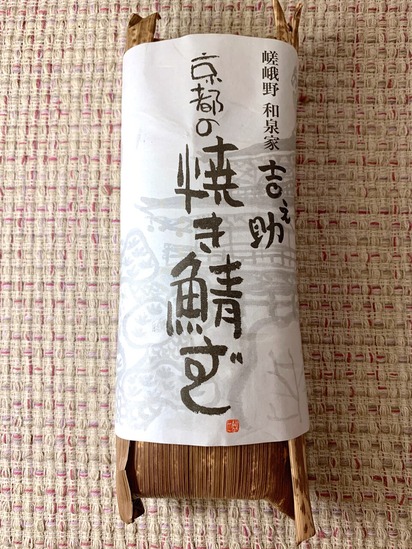 嵯峨野 和泉家
吉之助
京都の
焼き鯖ずし